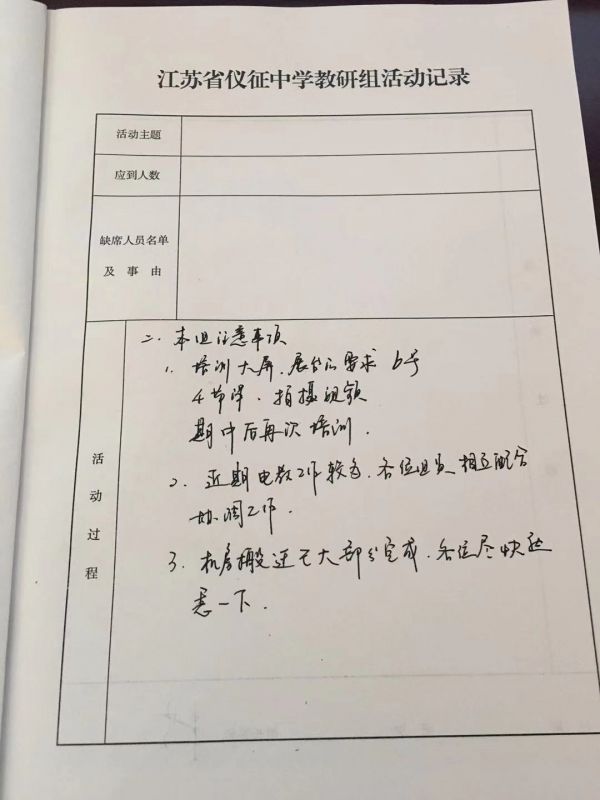 江苏省仪征中学教研组活动记录
活动主题
应到人数
缺席人员名单
及事由
活动过程
二、本组注意事项
1. 培训大屏、展台的要求 6号
4节课、拍摄视频
期中后再次培训.
2. 近期电教工作较多、各位组员相互配合
协调工作.
3. 机房搬迁已大部分完成、各位尽快熟
悉一下.